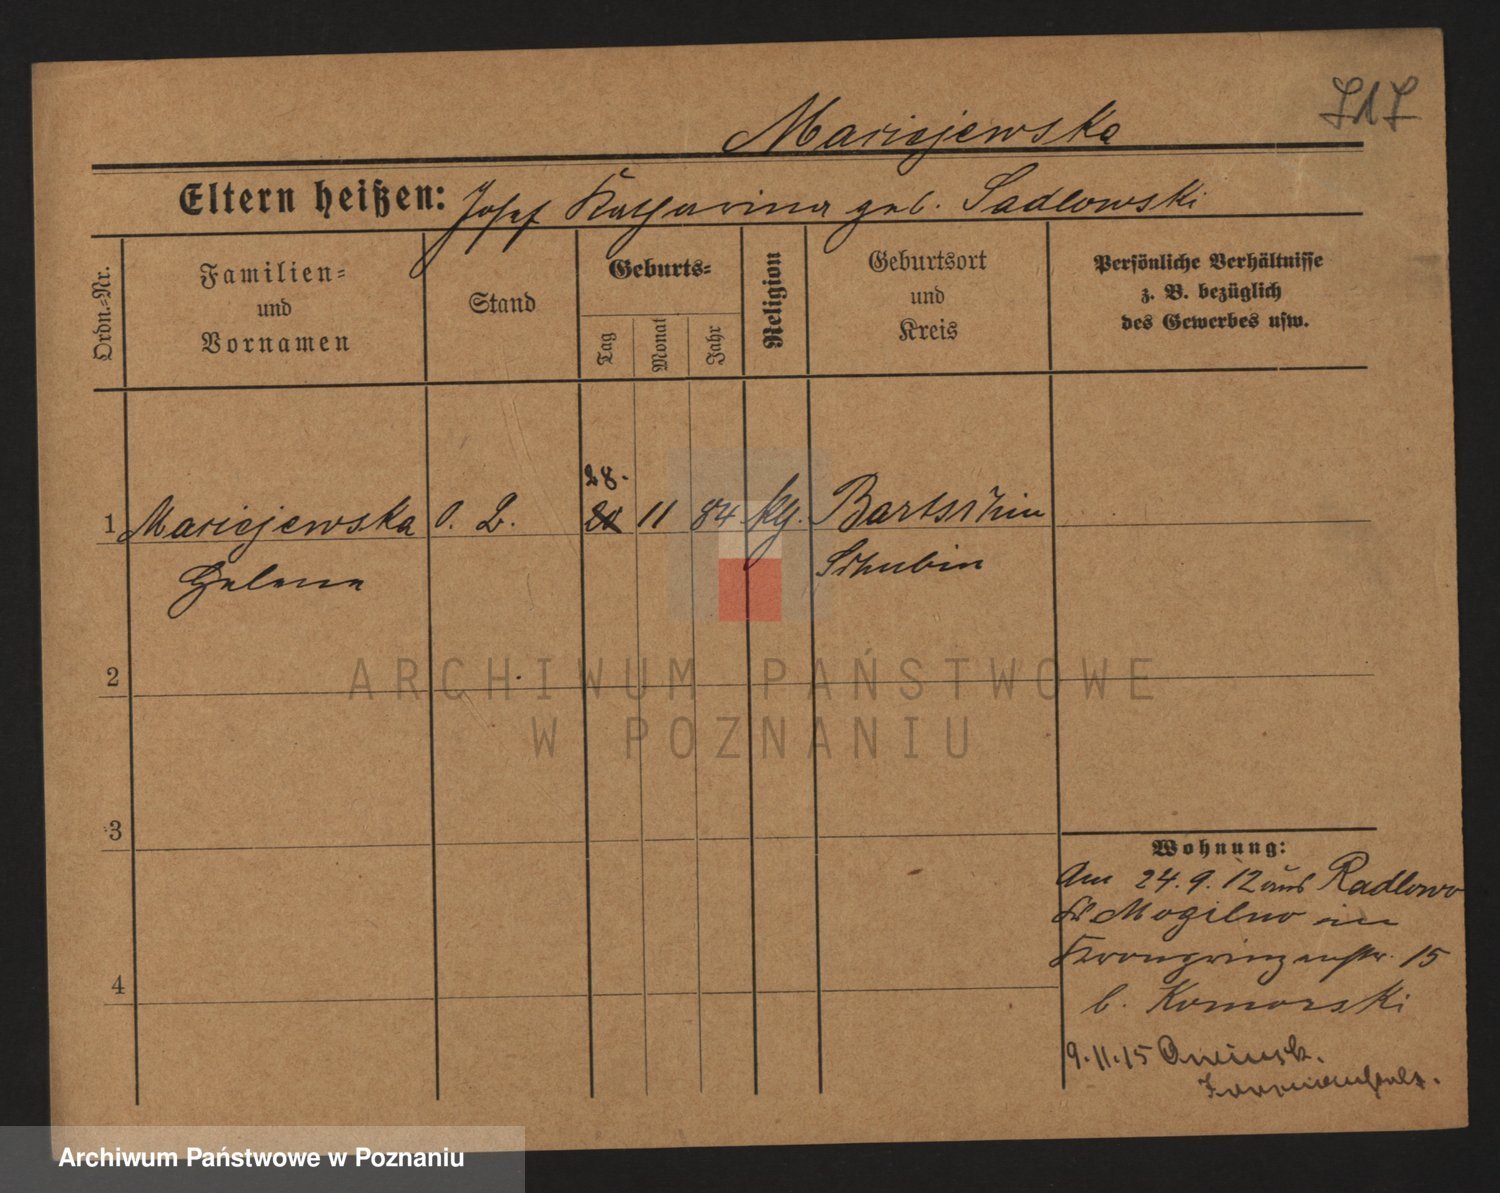 717
Maciejewska
Eltern heißen: Josef Katharina geb. Sadlowski
Ordn.=Nr.
Familien=
und
Vornamen
Stand
Geburts=
Tag
Monat
Jahr
Religion
Geburtsort
und
Kreis
Persönliche Verhältnisse
z. B. bezüglich
des Gewerbes usw.
28.
1 Maciejewska O. L. 20 11 84 kth. Bartschin
Helene Schubin
2
3
4
Wohnung:
Am 24.9.12 aus Radlowo
Kr Mogilno in
Kronprinzenstr. 15
b. Komorski
9.11.15
ARCHIWUM PAŃSTWOWE
W POZNANIU
Archiwum Państwowe w Poznaniu